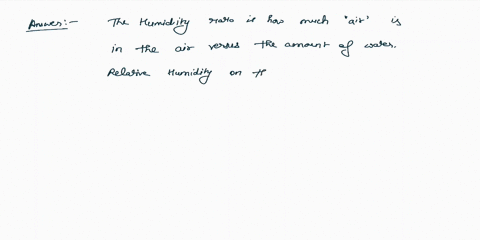 Answer:- The Humidity ratio is how much 'air' is
in the air versus the amount of water.
Relative Humidity on th